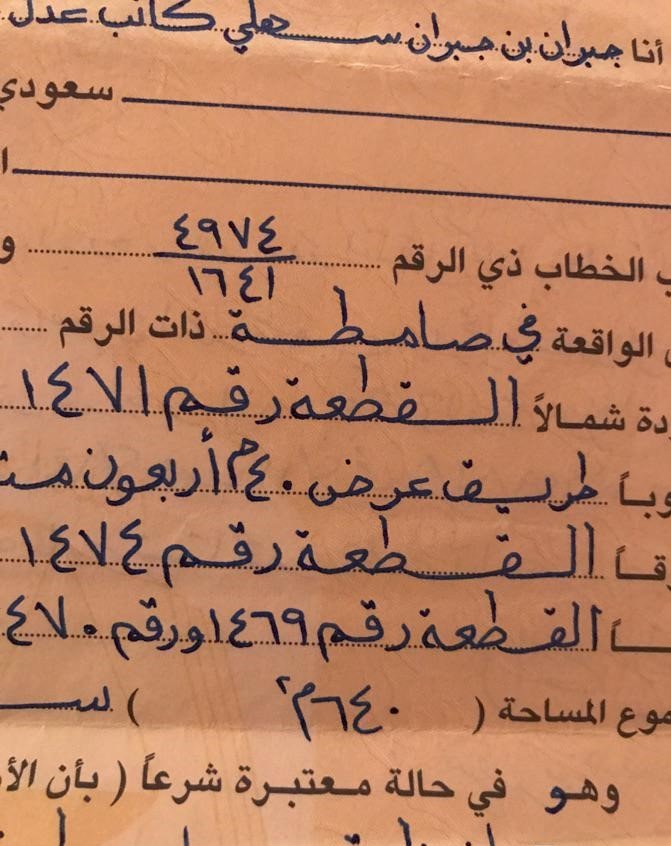 أنا جبران بن جبران سهلي كاتب عدل
سعودي
٤٩٧٤
الخطاب ذي الرقم
١٦٤١
الواقعة في صامطة ذات الرقم
دة شمالاً القطعة رقم ١٤٧١
وباً طريق عرض ٤٠م أربعون مت
رقاً القطعة رقم ١٤٧٤
القطعة رقم ١٤٦٩ ورقم ٤٧٠
موع المساحة ( ٦٤٠م٢ ) س
وهو في حالة معتبرة شرعاً ( بأن الأ